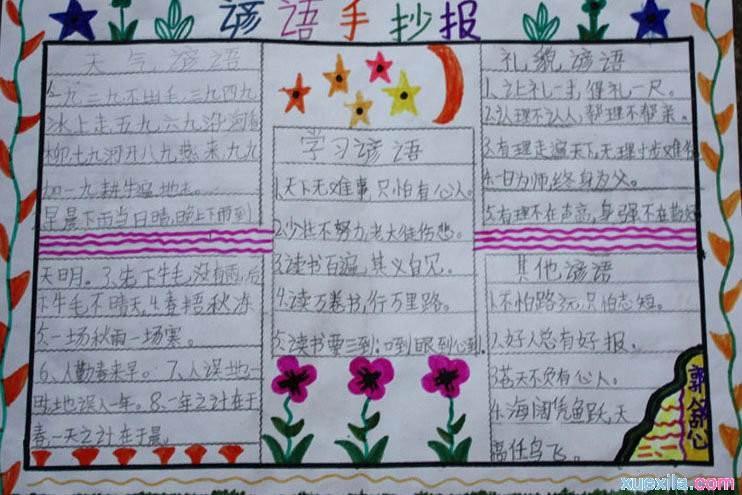 谚语手抄报
天气谚语
1、一九二九不出手,三九四九
冰上走,五九六九沿河看
柳七九河开八九燕来,九九
加一九耕牛遍地走。
2、早晨下雨当日晴,晚上下雨到
天明。3、先下牛毛没有雨,后
下牛毛不晴天,4、春捂秋冻
5、一场秋雨一场寒。
6、人勤春来早。7、人误地一
时地误人一年。8、一年之计在于
春,一天之计在于晨。
学习谚语
1、天下无难事,只怕有心人。
2、少壮不努力,老大徒伤悲。
3、读书百遍,其义自见。
4、读万卷书,行万里路。
5、读书要三到:口到眼到心到
礼貌谚语
1、让礼一寸,得礼一尺。
2、认理不认人,帮理不帮亲。
3、有理走遍天下,无理寸步难行
4、一日为师,终身为父。
5、有理不在声高,身强不在
其他谚语
1、不怕路远,只怕志短。
2、好人总有好报。
3、苍天不负有心人。
4、海阔凭鱼跃,天
高任鸟飞。
心
xuexila.com